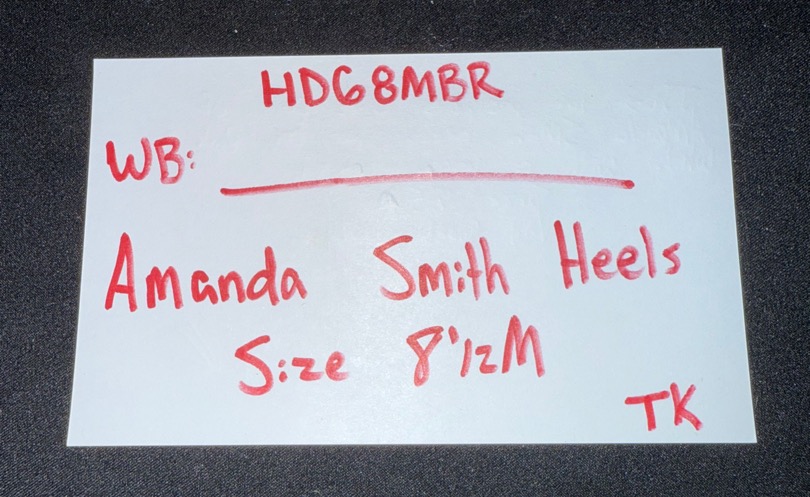 HD68MBR
WB:
Amanda Smith Heels
Size 8 1/2M
TK